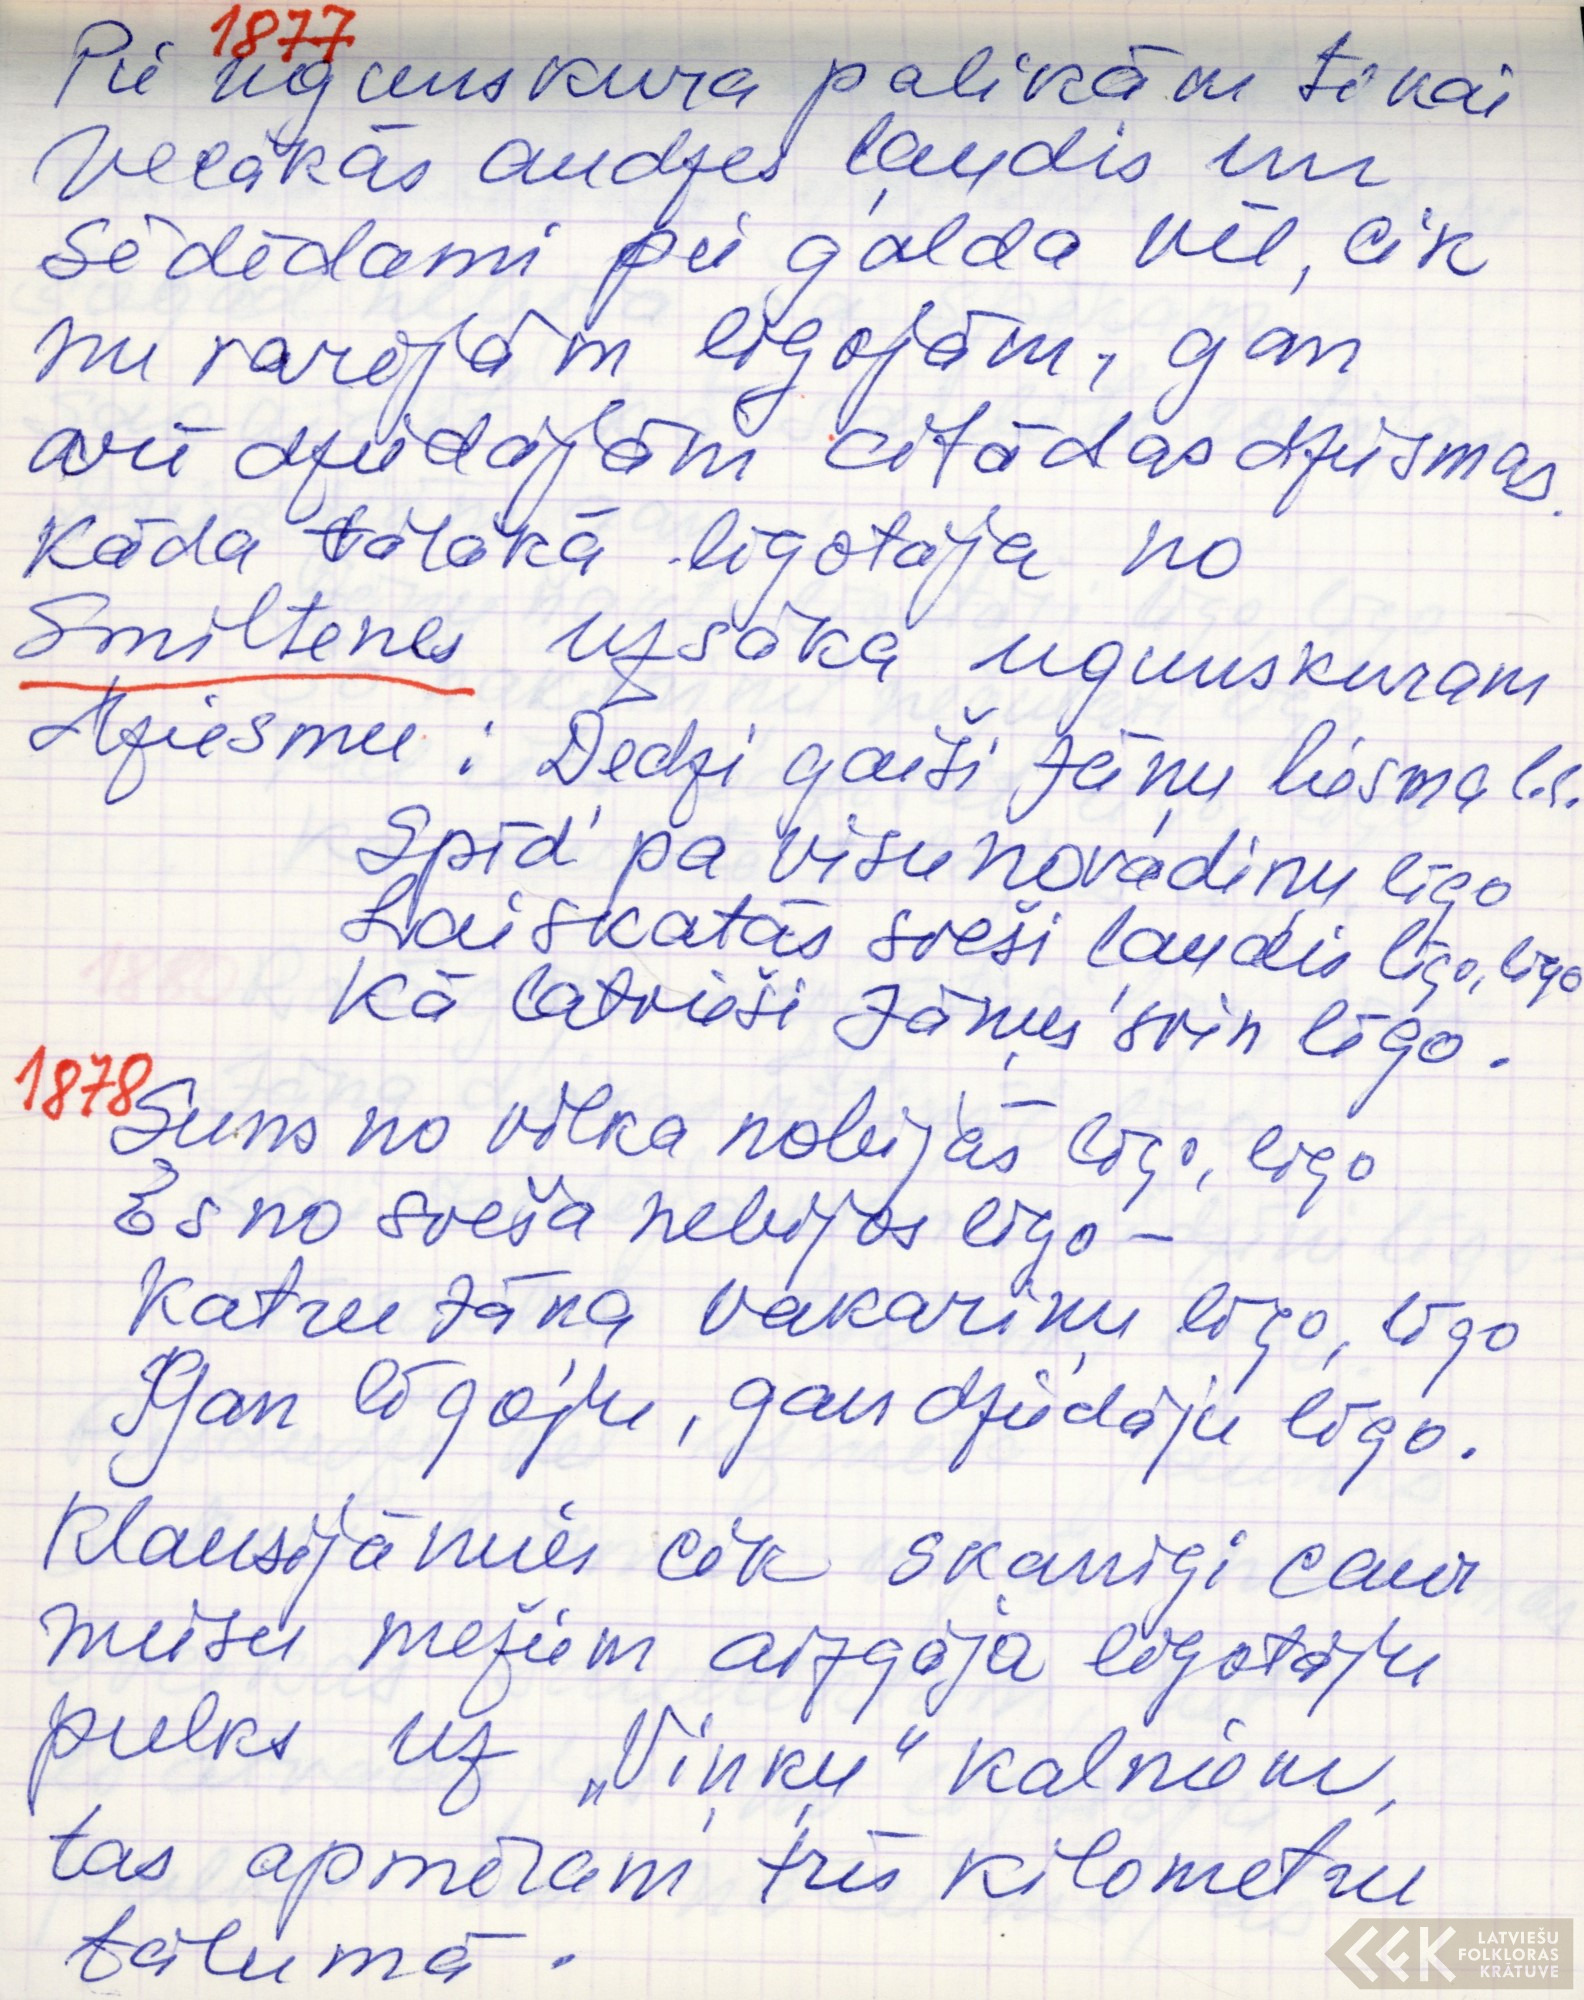 1877
Pie ugunskura palikām tikai
vecākās audzes ļaudis un
sēdēdami pie galda vēl, cik
nu varējām līgojām, gan
arī dziedājām citādas dziesmas.
Kāda tālākā līgotāja no
Smiltenes uzsāka ugunskuram
dziesmu: Dedzi gaiši Jāņu liesma l.l.
Spīd' pa visu novadiņu līgo
Lai skatās sveši ļaudis līgo, līgo
Kā latvieši Jāņus svin līgo.
1878
Suns no vilka nobijās līgo, līgo
Es no sveša nebijos līgo –
Katru Jāņa vakariņu līgo, līgo
Gan līgoju, gan dziedāju līgo.
Klausījāmies cik skanīgi caur
mūsu mežiem aizgāja līgotāju
pulks uz „Viņķu" kalniem,
tas apmēram trīs kilometru
tālumā.
LATVIEŠU
FOLKLORAS
KRĀTUVE